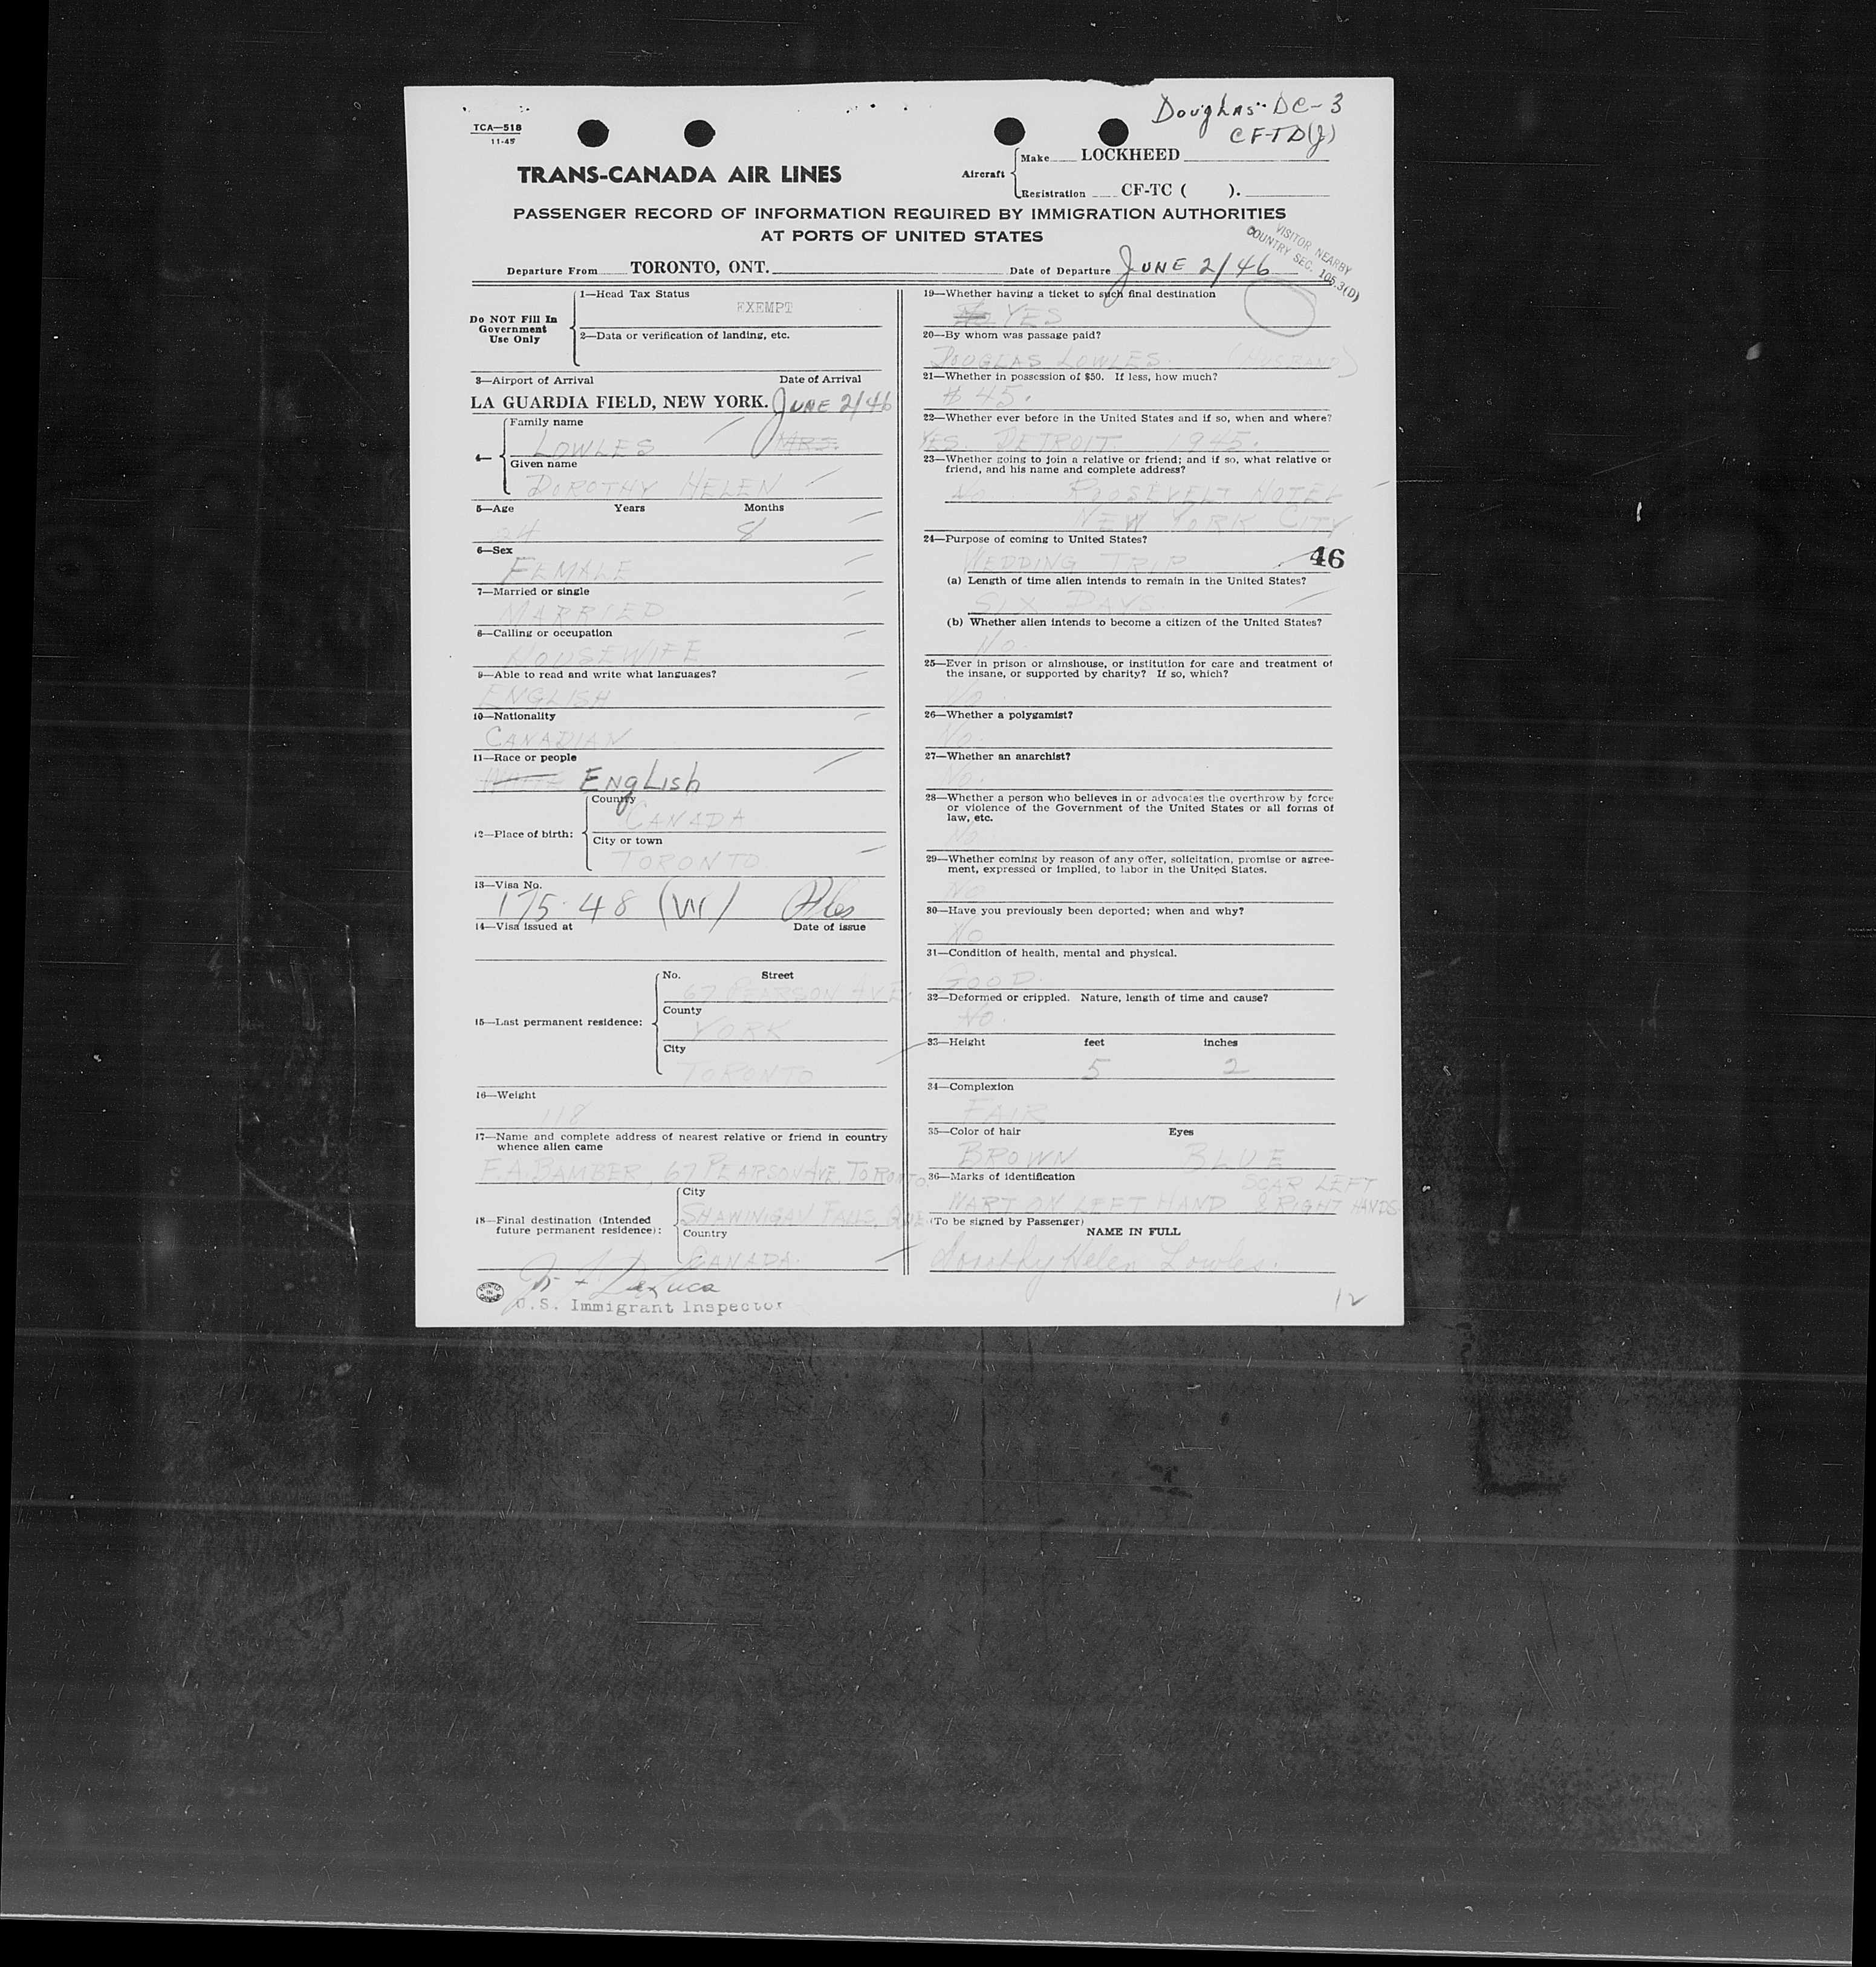 Douglas DC-3
CF-TD(J)
TCA—518
11-45
TRANS-CANADA AIR LINES
Aircraft
Make LOCKHEED
Registration CF-TC ( ).
PASSENGER RECORD OF INFORMATION REQUIRED BY IMMIGRATION AUTHORITIES
AT PORTS OF UNITED STATES
VISITOR NEARBY
COUNTRY SEC. 105.3(D)
Departure From TORONTO, ONT. Date of Departure JUNE 2/46
Do NOT Fill In
Government
Use Only
1—Head Tax Status
EXEMPT
2—Data or verification of landing, etc.
3—Airport of Arrival Date of Arrival
LA GUARDIA FIELD, NEW YORK. JUNE 2/46
4—
Family name
LOWLES MRS.
Given name
DOROTHY HELEN
5—Age Years Months
24 8
6—Sex
FEMALE
7—Married or single
MARRIED
8—Calling or occupation
HOUSEWIFE
9—Able to read and write what languages?
ENGLISH
10—Nationality
CANADIAN
11—Race or people
WHITE ENgLish
12—Place of birth:
Country
CANADA
City or town
TORONTO
13—Visa No.
175.48 (W)
14—Visa issued at Date of issue
15—Last permanent residence:
No. Street
67 PEARSON AVE.
County
YORK
City
TORONTO
16—Weight
118
17—Name and complete address of nearest relative or friend in country
whence alien came
F.A. BAMBER, 67 PEARSON AVE. TORONTO.
18—Final destination (Intended
future permanent residence):
City
SHAWINIGAN FALLS, QUE
Country
CANADA.
U.S. Immigrant Inspector
PRINTED IN CANADA
19—Whether having a ticket to such final destination
No YES
20—By whom was passage paid?
DOUGLAS LOWLES. (HUSBAND)
21—Whether in possession of $50. If less, how much?
$45.
22—Whether ever before in the United States and if so, when and where?
YES. DETROIT. 1945.
23—Whether going to join a relative or friend; and if so, what relative or
friend, and his name and complete address?
No ROOSEVELT HOTEL
NEW YORK CITY
24—Purpose of coming to United States?
WEDDING TRIP 46
(a) Length of time alien intends to remain in the United States?
SIX DAYS
(b) Whether alien intends to become a citizen of the United States?
No.
25—Ever in prison or almshouse, or institution for care and treatment of
the insane, or supported by charity? If so, which?
No.
26—Whether a polygamist?
No.
27—Whether an anarchist?
No.
28—Whether a person who believes in or advocates the overthrow by force
or violence of the Government of the United States or all forms of
law, etc.
No
29—Whether coming by reason of any offer, solicitation, promise or agree-
ment, expressed or implied, to labor in the United States.
No
30—Have you previously been deported; when and why?
No
31—Condition of health, mental and physical.
GOOD.
32—Deformed or crippled. Nature, length of time and cause?
No.
33—Height feet inches
5 2
34—Complexion
FAIR
35—Color of hair Eyes
BROWN BLUE
36—Marks of identification
SCAR LEFT
WART ON LEFT HAND & RIGHT HANDS
(To be signed by Passenger)
NAME IN FULL
Dorothy Helen Lowles.
12